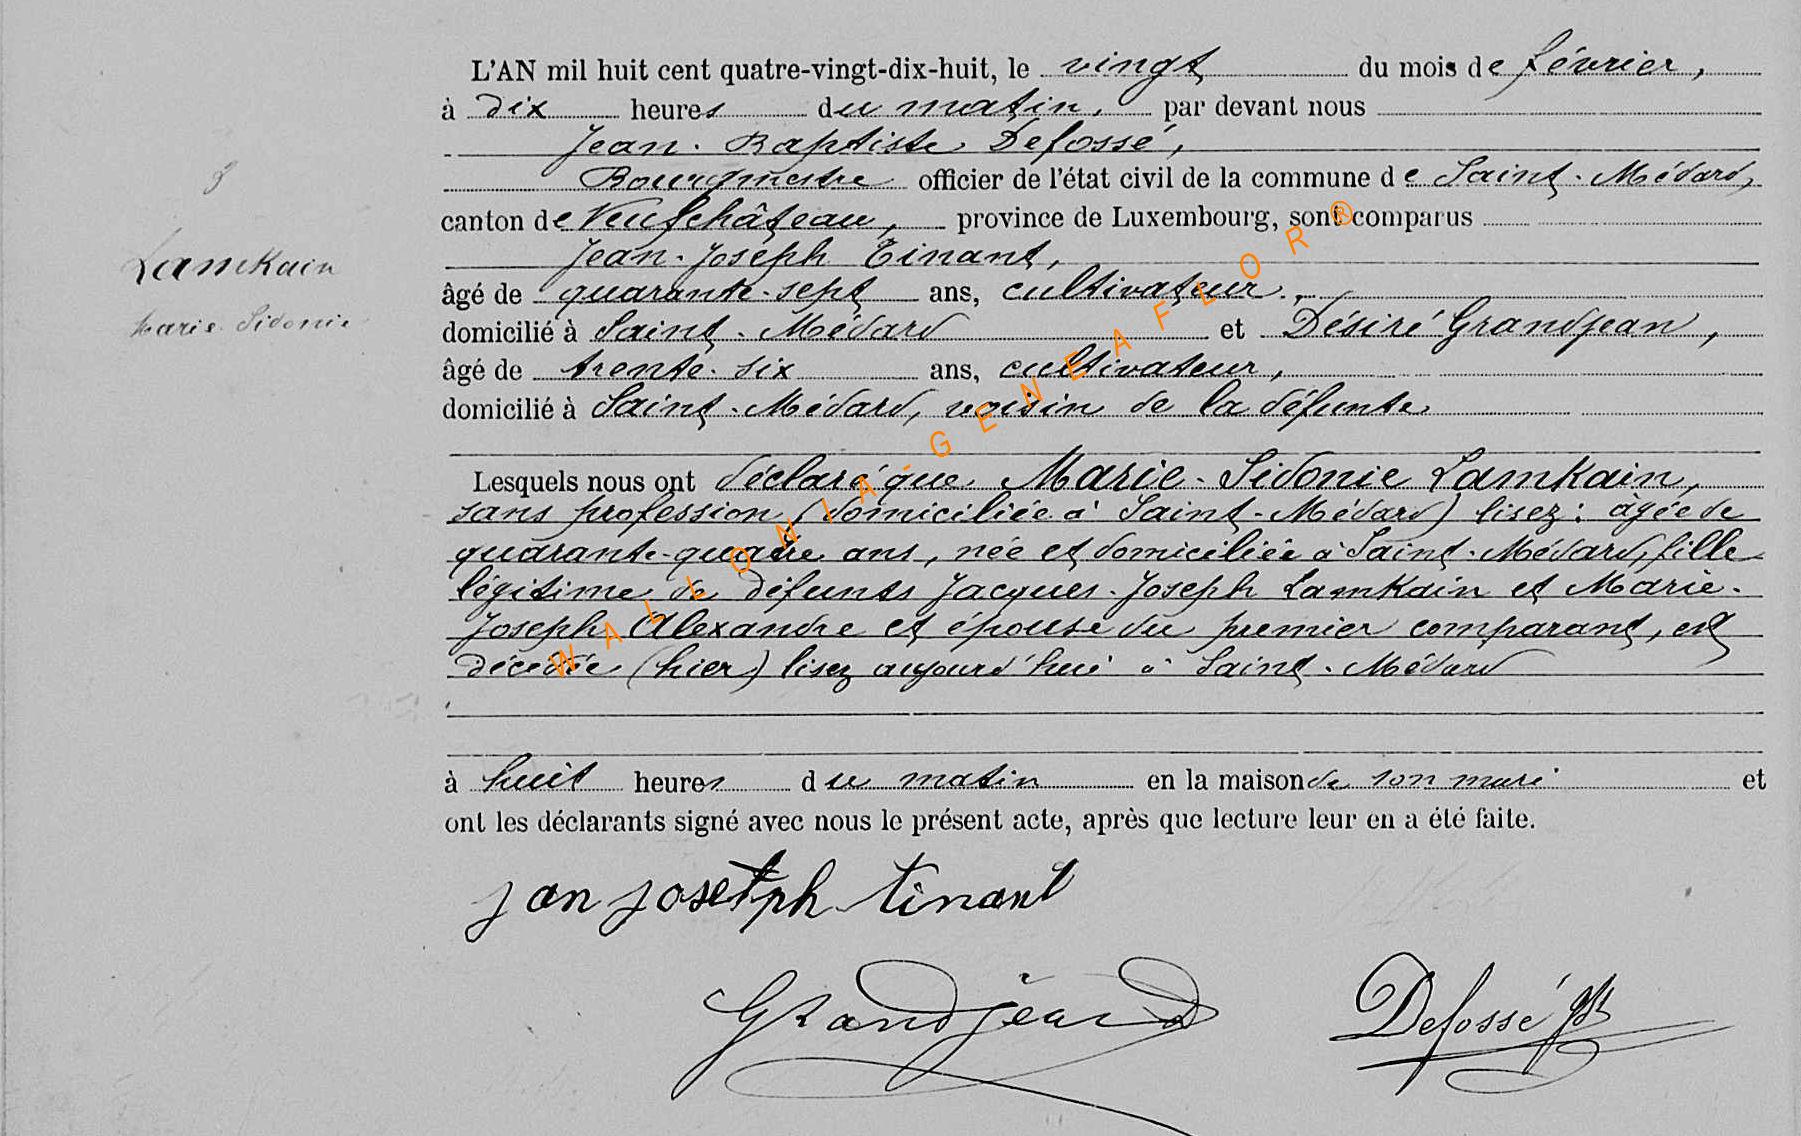 L'AN mil huit cent quatre-vingt-dix-huit, le vingt du mois de février,
à dix heures du matin, par devant nous
Jean-Baptiste Defossé,
Bourgmestre officier de l'état civil de la commune de Saint-Médard,
canton de Neufchâteau, province de Luxembourg, sont comparus
Jean-Joseph Tinant,
âgé de quarante-sept ans, cultivateur,
domicilié à Saint-Médard et Désiré Grandjean,
âgé de trente-six ans, cultivateur,
domicilié à Saint-Médard, voisin de la défunte
Lamkain
Marie-Sidonie
Lesquels nous ont déclaré que Marie-Sidonie Lamkain,
sans profession, (domiciliée à Saint-Médard) lisez: âgée de
quarante-quatre ans, née et domiciliée à Saint-Médard, fille
légitime de défunts Jacques-Joseph Lamkain et Marie-
Joseph Alexandre et épouse du premier comparant, est
décédée (hier) lisez aujourd'hui à Saint-Médard
à huit heures du matin en la maison de son mari et
ont les déclarants signé avec nous le présent acte, après que lecture leur en a été faite.
jan josetph tinant
Grandjean D
Defossé JB
WALLONIA-GENEAFLOR®